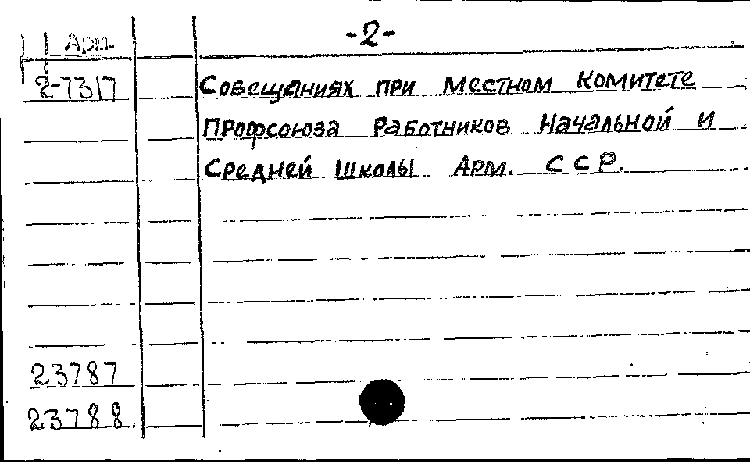 Арм. -2-
2-7317 Совещаниях при Местном Комитете
Профсоюза Работников Начальной и
Средней Школы Арм. ССР.
23787
23788